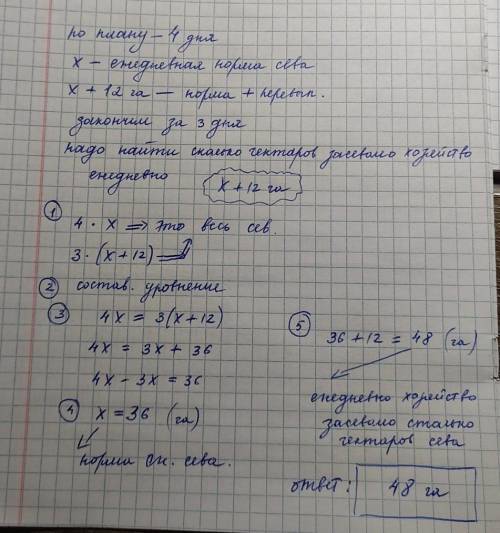 по плану – 4 дня
х – ежедневная норма сева
х + 12 га – норма + перевып.
закончим за 3 дня
надо найти сколько гектаров засевало хозяйство
ежедневно х + 12 га
① 4 · х ⇒ это весь сев.
3 · (х + 12)
② состав. уравнение
③ 4х = 3(х + 12)
4х = 3х + 36
4х – 3х = 36
④ х = 36 (га)
норма сева.
⑤ 36 + 12 = 48 (га)
ежедневно хозяйство
засевало столько
гектаров сева
ответ: 48 га